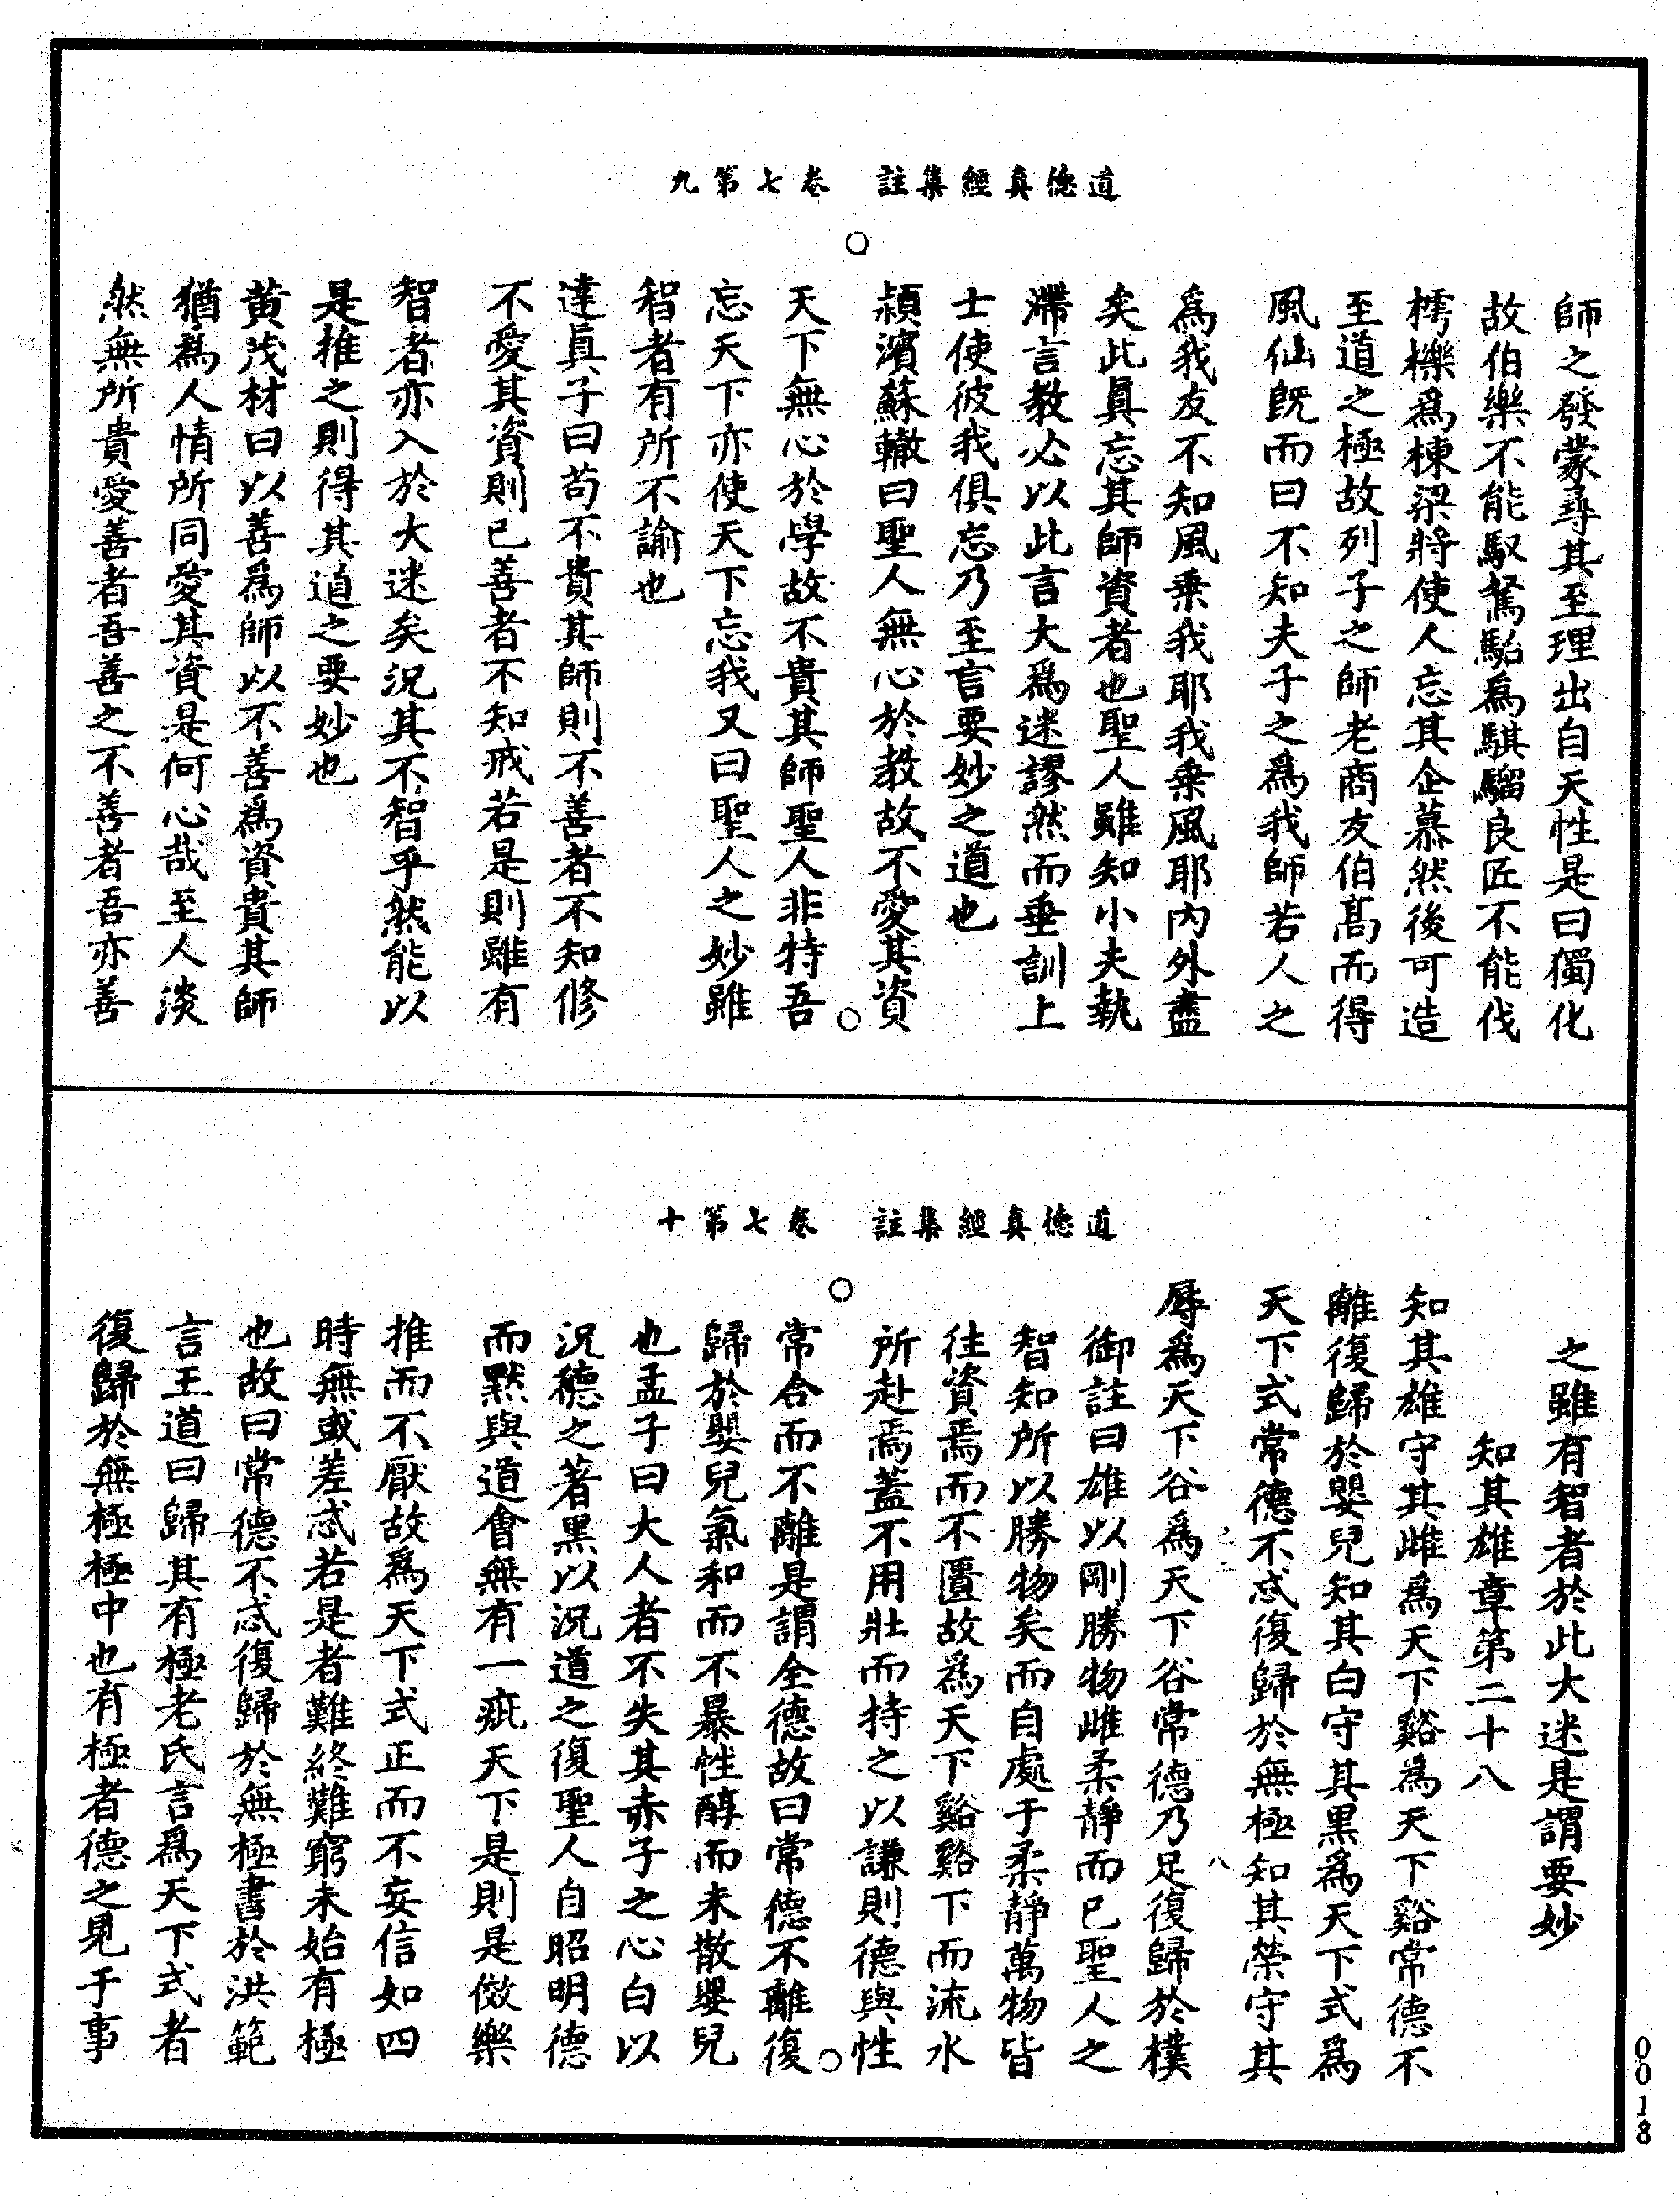 道德真經集註　卷七第九
師之發蒙尋其至理出自天性是曰獨化
故伯樂不能馭駑駘爲騏騮良匠不能伐
樗櫟爲棟梁將使人忘其企慕然後可造
至道之極故列子之師老商友伯髙而得
風仙旣而曰不知夫子之爲我師若人之
爲我友不知風乗我耶我乗風耶內外盡
矣此眞忘其師資者也聖人雖知小夫執
滯言教必以此言大爲迷謬然而垂訓上
士使彼我俱忘乃至言要妙之道也
頴濱蘇轍曰聖人無心於教故不愛其資
天下無心於學故不貴其師聖人非特吾
忘天下亦使天下忘我又曰聖人之妙雖
智者有所不諭也
達眞子曰苟不貴其師則不善者不知修
不愛其資則已善者不知戒若是則雖有
智者亦入於大迷矣況其不智乎然能以
是推之則得其道之要妙也
黄茂材曰以善爲師以不善爲資貴其師
猶爲人情所同愛其資是何心哉至人淡
然無所貴愛善者吾善之不善者吾亦善
道德真經集註　卷七第十
之雖有智者於此大迷是謂要妙
知其雄章第二十八
知其雄守其雌爲天下谿爲天下谿常德不
離復歸於嬰兒知其白守其黒爲天下式爲
天下式常德不忒復歸於無極知其榮守其
辱爲天下谷爲天下谷常德乃足復歸於樸
御註曰雄以剛勝物雌柔靜而已聖人之
智知所以勝物矣而自處于柔靜萬物皆
往資焉而不匱故爲天下谿谿下而流水
所赴焉蓋不用壯而持之以謙則德與性
常合而不離是謂全德故曰常德不離復
歸於嬰兒氣和而不暴性醇而未散嬰兒
也孟子曰大人者不失其赤子之心白以
況德之著黒以況道之復聖人自昭明德
而黙與道會無有一疵天下是則是傚樂
推而不厭故爲天下式正而不妄信如四
時無或差忒若是者難終難窮未始有極
也故曰常德不忒復歸於無極書於洪範
言王道曰歸其有極老氏言爲天下式者
復歸於無極極中也有極者德之見于事
八
0018